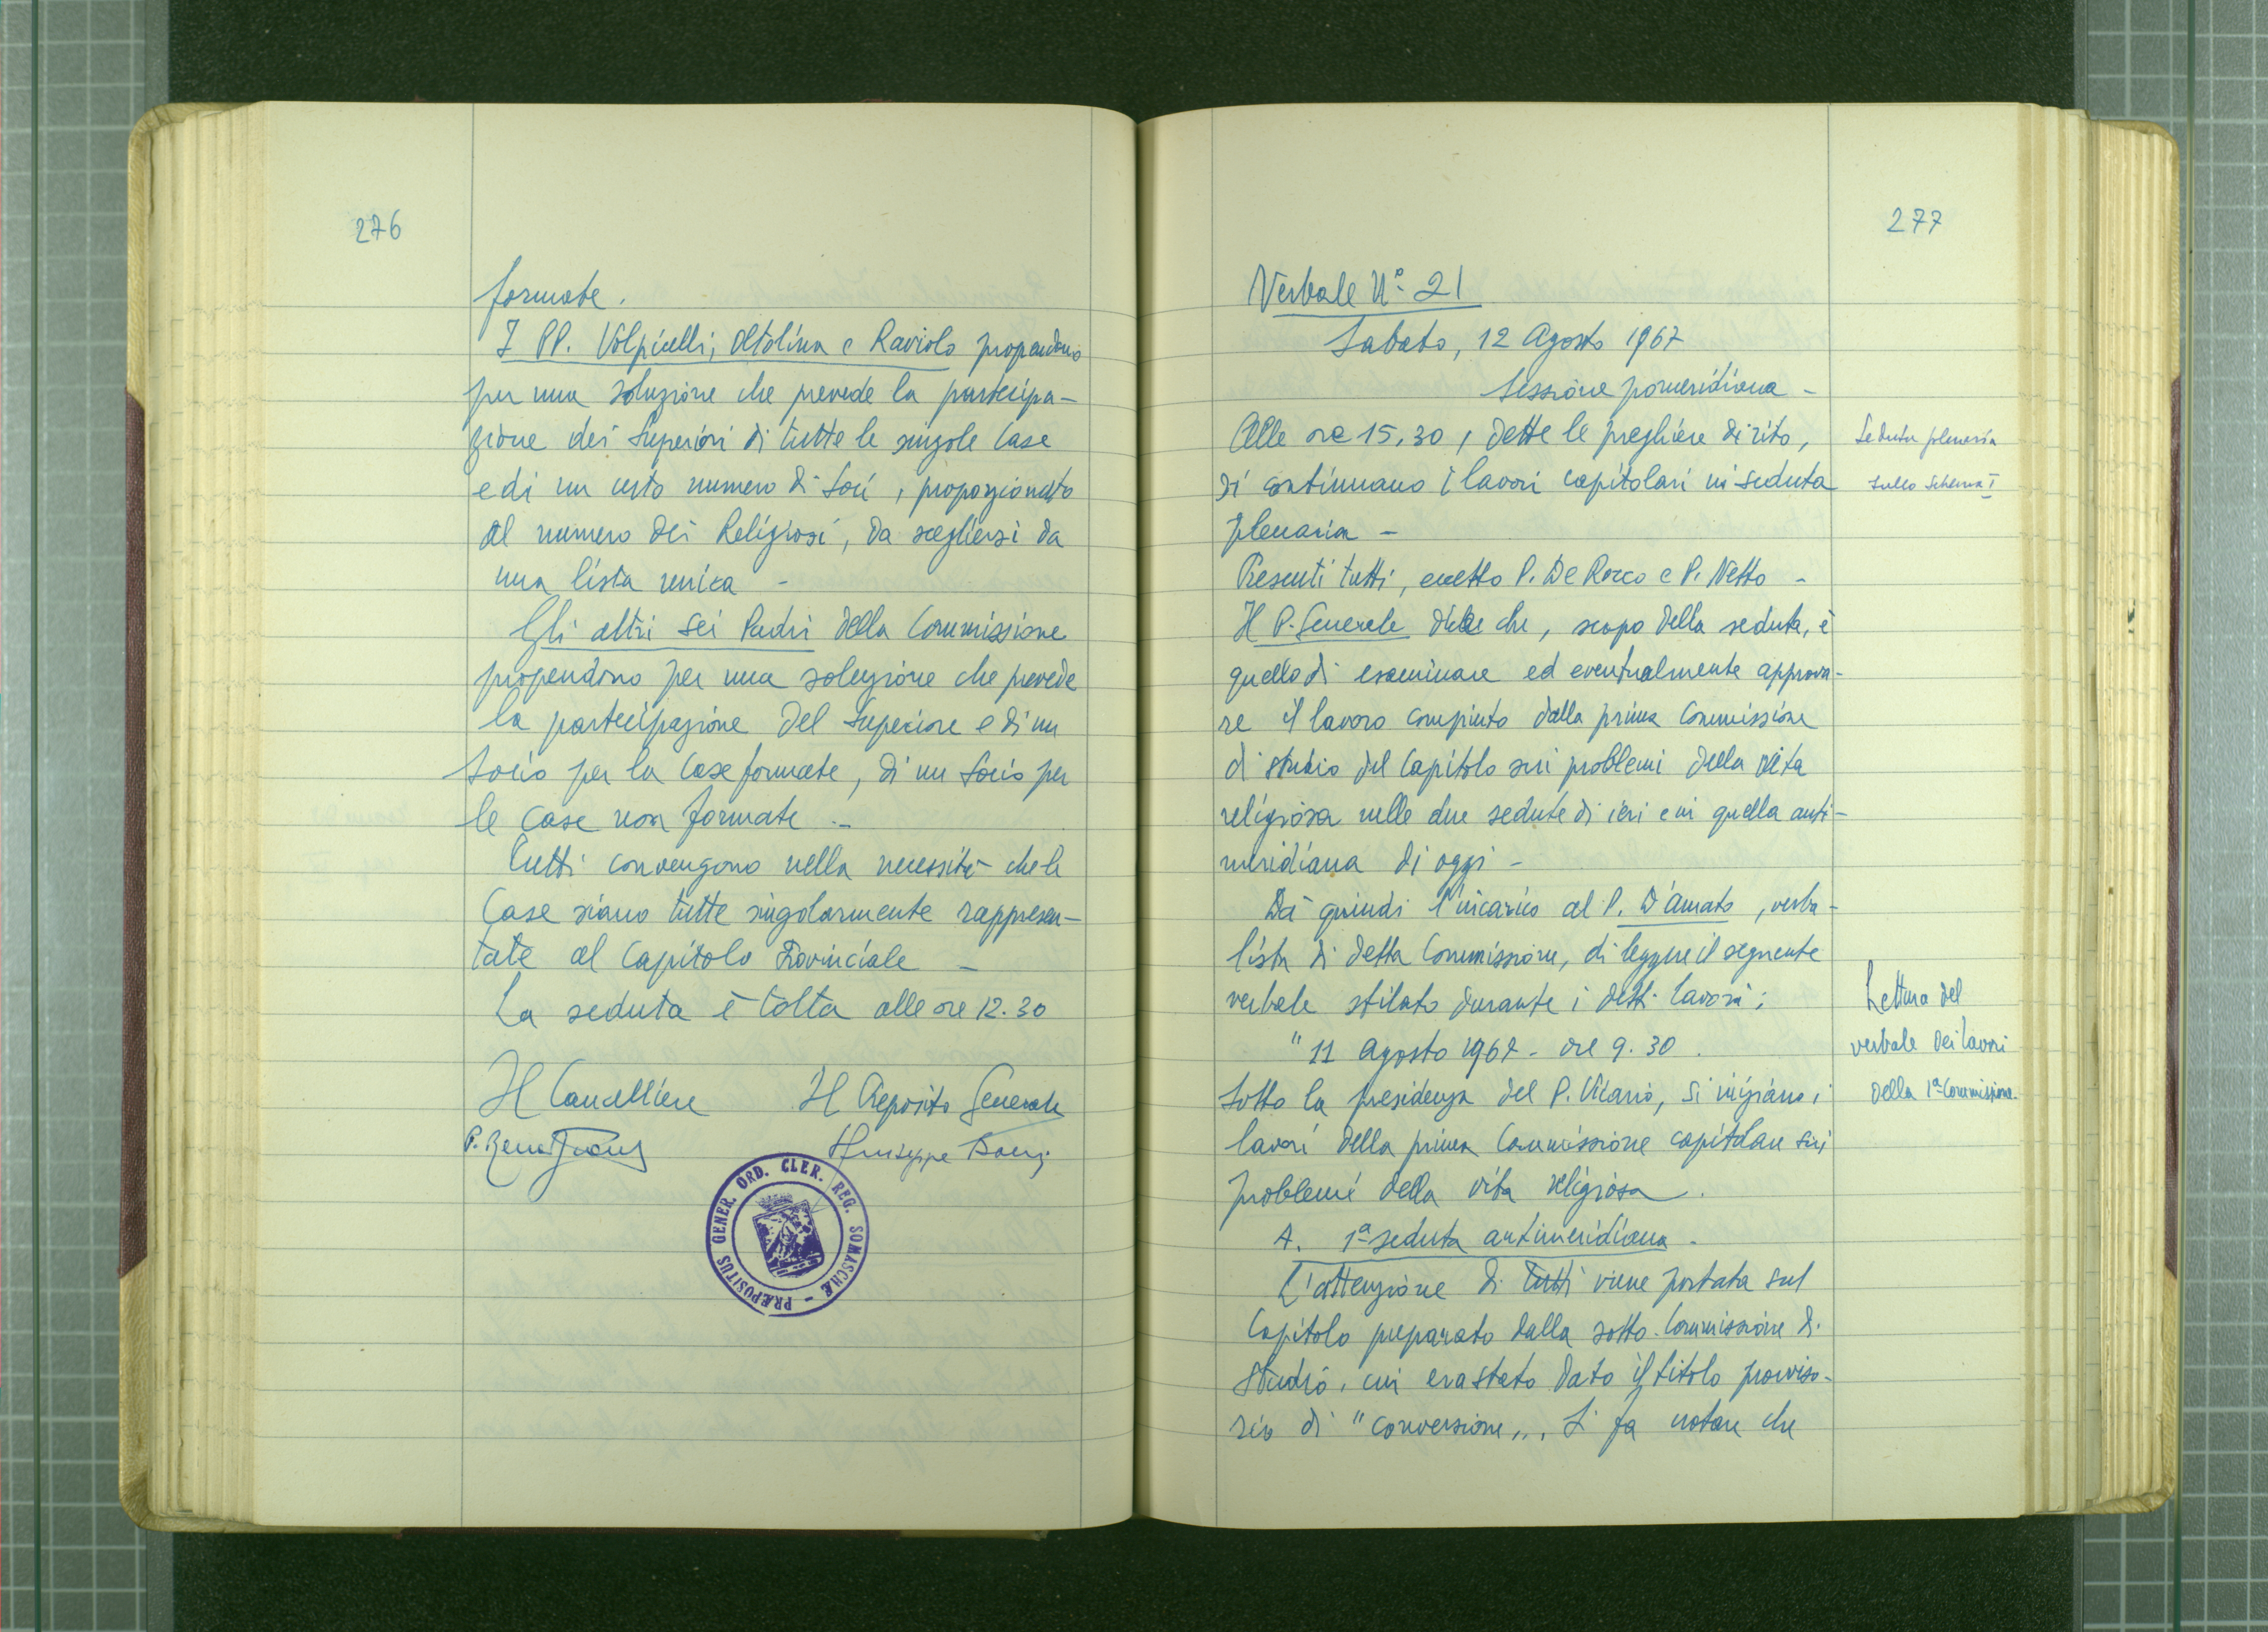 276
formate.
I PP. Volpicelli, Oltolina e Raviolo propendono
per una soluzione che prevede la partecipa-
zione dei Superiori di tutte le singole Case
e di un certo numero di Soci, proporzionato
al numero dei Religiosi, da scegliersi da
una lista unica -
Gli altri sei Padri della Commissione
propendono per una soluzione che prevede
la partecipazione del Superiore e di un
Socio per la Case formate, di un Socio per
le Case non formate -
Tutti convengono nella necessità che le
Case siano tutte singolarmente rappresen-
tate al Capitolo Provinciale -
La seduta è tolta alle ore 12.30
Il Cancelliere Il Preposito Generale
Giuseppe
PRÆPOSITUS GENER. ORD. CLER. REG. SOMASCHÆ -
277
Verbale N° 21
Sabato, 12 Agosto 1967
Sessione pomeridiana -
Alle ore 15,30, dette le preghiere di rito,
si continuano i lavori capitolari in seduta
plenaria -
Seduta plenaria
sullo Schema I
Presenti tutti, eccetto P. De Rocco e P. Netto -
Il P. Generale dice che, scopo della seduta, è
quello di esaminare ed eventualmente approva-
re il lavoro compiuto dalla prima Commissione
di studio del Capitolo sui problemi della vita
religiosa nelle due sedute di ieri e in quella anti-
meridiana di oggi -
Dà quindi l'incarico al P. D'Amato, verba-
lista di detta Commissione, di leggere il seguente
verbale stilato durante i detti lavori:
Lettura del
verbale dei lavori
della 1ª Commissione.
"11 Agosto 1967 - ore 9.30.
Sotto la presidenza del P. Vicario, si iniziano i
lavori della prima Commissione capitolare sui
problemi della vita religiosa.
A. 1ª seduta antimeridiana -
L'attenzione di tutti viene portata sul
Capitolo preparato dalla sotto-Commissione di
studio, cui era stato dato il titolo provviso-
rio di "conversione,,. Si fa notare che